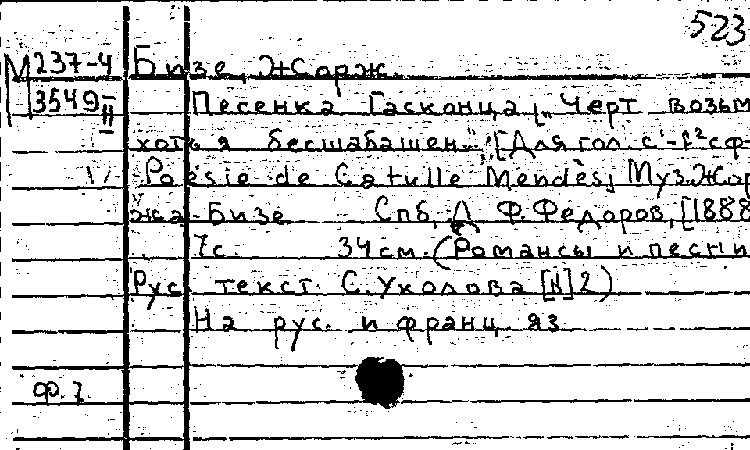 523
М 237-4 Бизе, Жорж.
3549 II Песенка Гасконца [„Черт возьм
хоть я бесшабашен..."] [Для гол. с¹-f² с ф-
Poésie de Catulle Mendès, Муз. Жор
жа Бизе Спб, Д. Ф. Федоров, [1888
7с. 34 см. (Романсы и песни
Рус. текст С. Ухолова [N] 2)
На рус. и франц. яз
ф. 2.